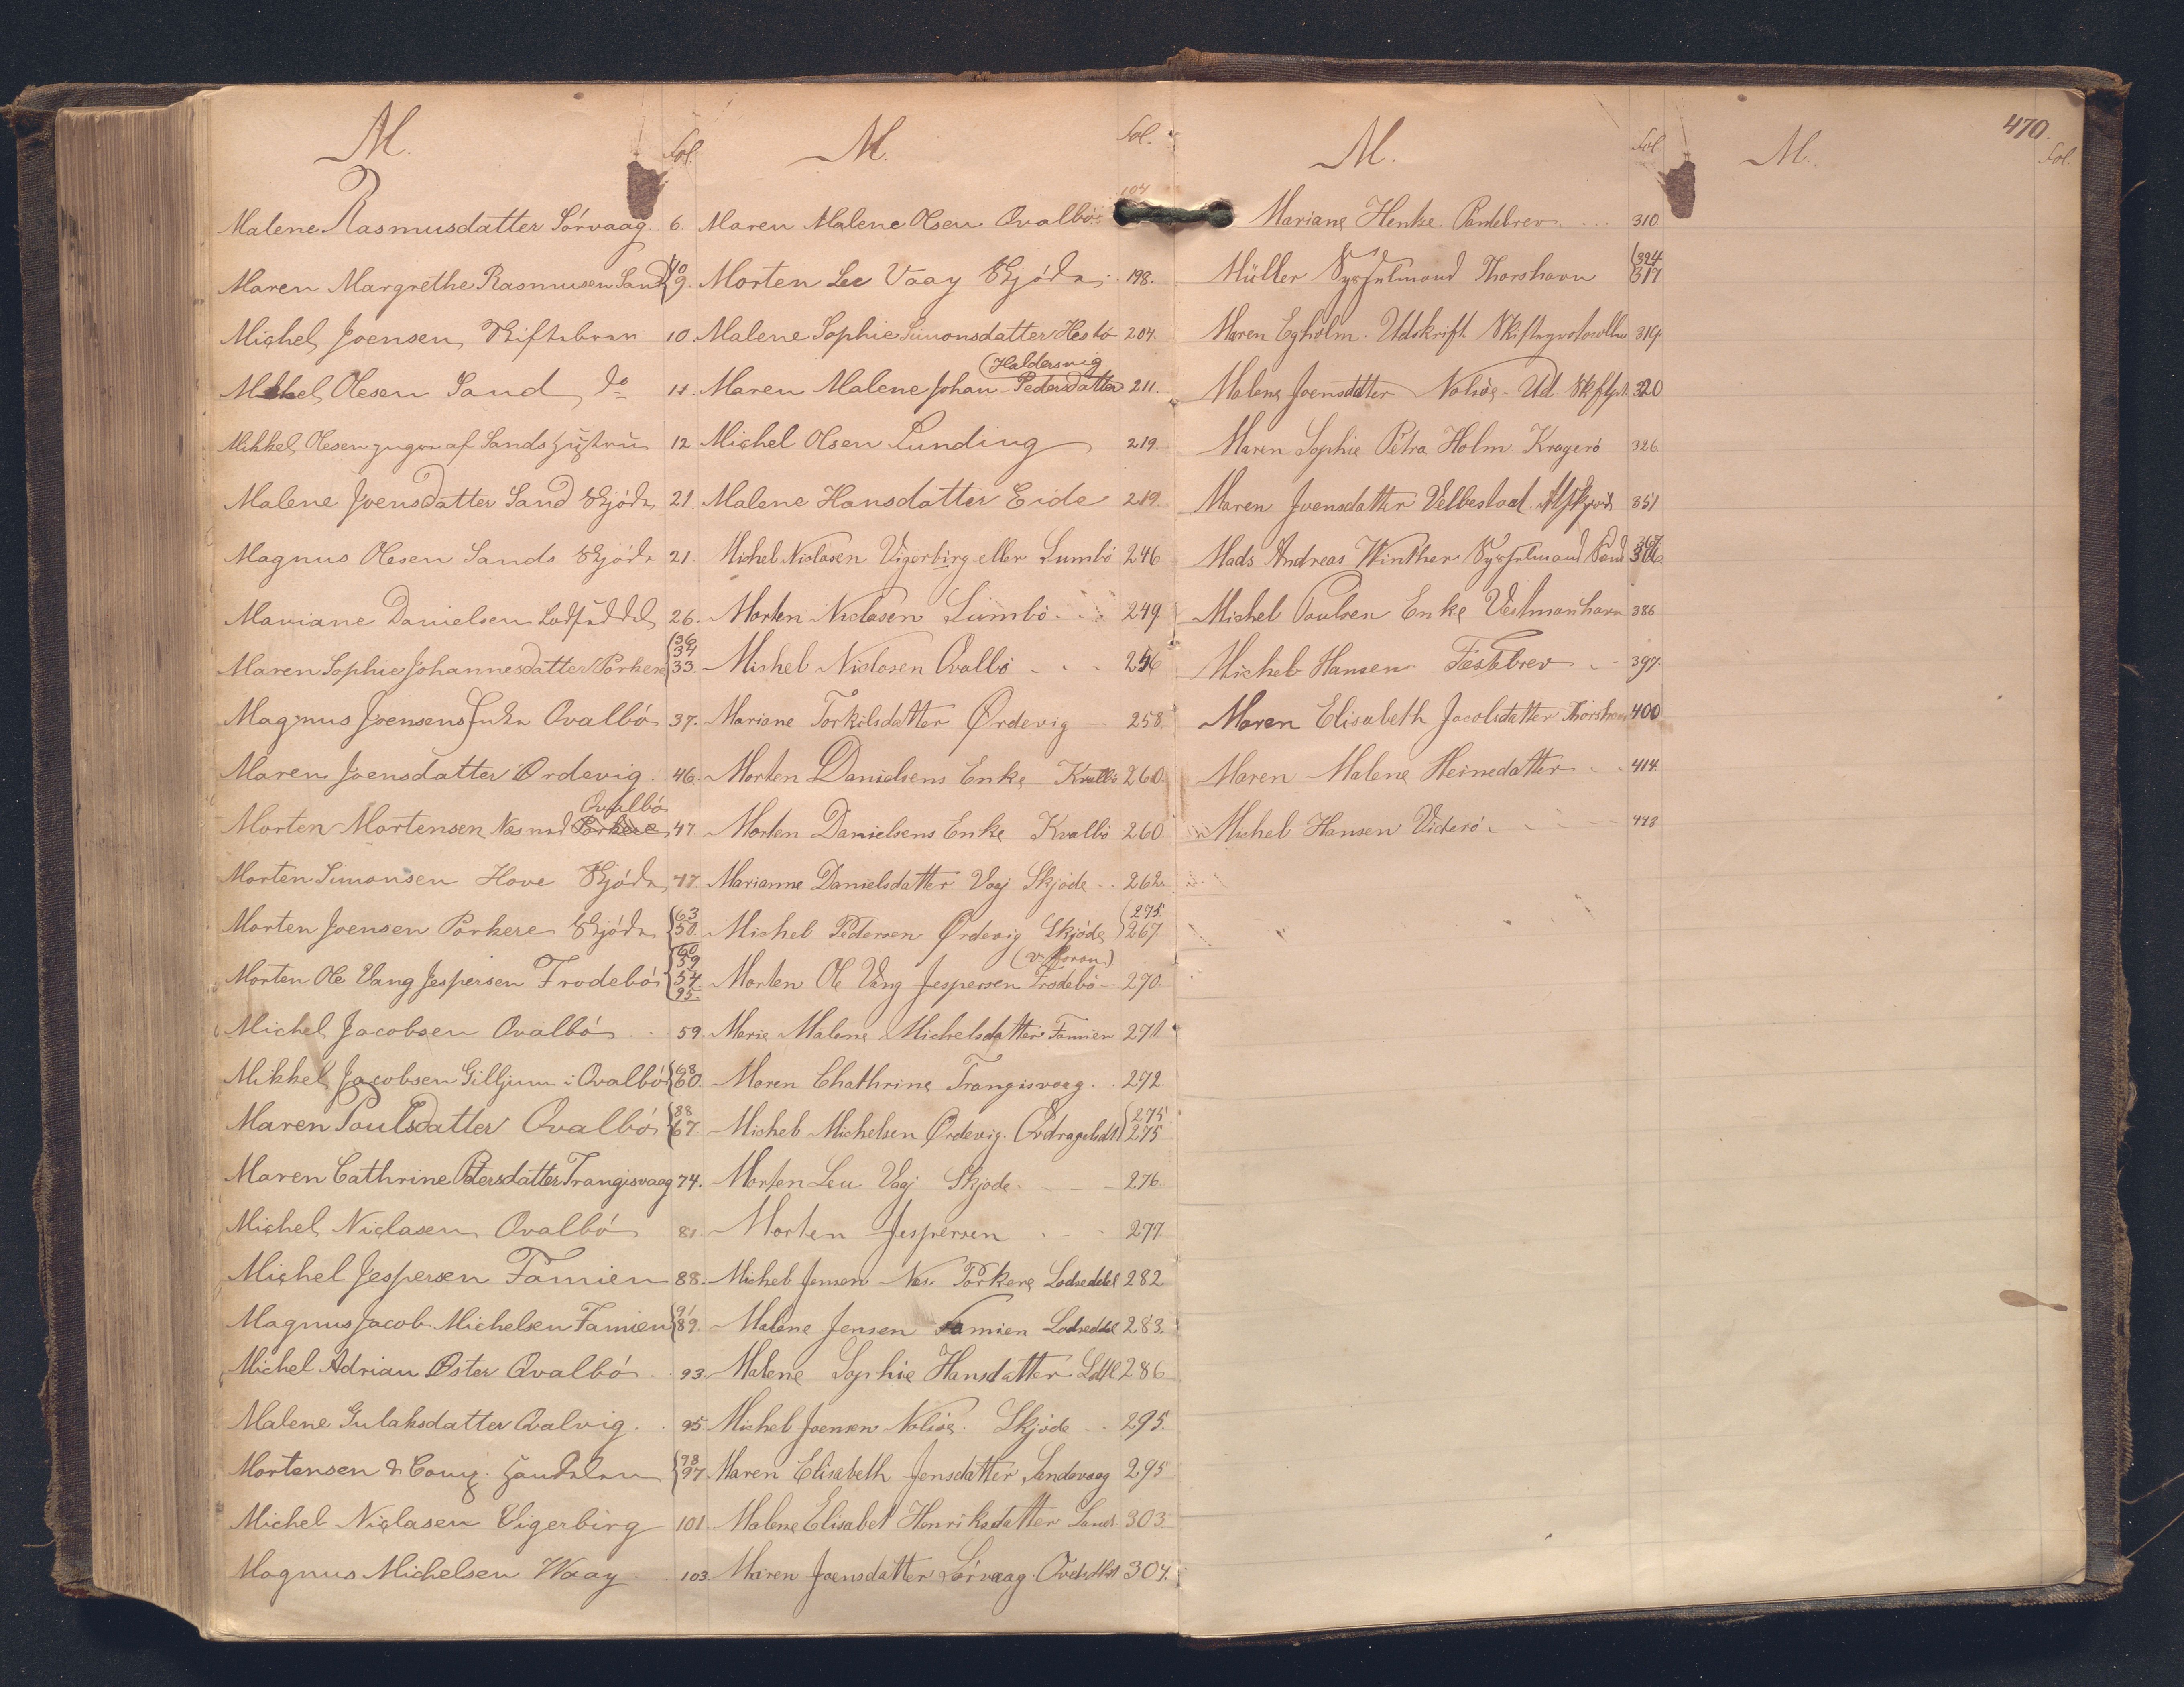 470.
M. Fol.
Malene Rasmusdatter Sórvaag. 6.
Maren Margrethe Rasmusen Sand {10 9.
Michel Joensen, Skiftebrev 10.
Mikkel Olesen Sand do 11.
Mikkel Olesen af Sands 12
Malene Joensdatter Sand Skjöde 21.
Magnus Olesen Sands Skjöde 21.
Mariane Danielsen Lodseddel 26.
Maren Sophie Johannesdatter Porkere {36 34 33.
Magnus Joensens Enke Qvalbó 37.
Maren Joensdatter Ördevig. 46.
Qvalbó
Morten Mortensen Næs ved Porkere 47.
Morten Simonsen Hove Skjöde 47.
Morten Joensen Porkere Skjöde {63 50.
Morten Ole Vang Jespersen Frodebó {60 59 54. 95.
Michel Jacobsen Qvalbó 59.
Mikkel Jacobsen Gilljum i Qvalbó {68 60.
Maren Poulsdatter Qvalbó {88 67
Maren Cathrine Petersdatter Trangisvaag 74.
Michel Niclasen Qvalbó 81.
Michel Jespersen Famien 88.
Magnus Jacob Michelsen Famien {91 89.
Michel Adrian Øster Qvalbó 93.
Malene Gulaksdatter Qvalvig. 95.
Mortensen & Comp. Handelen {98 97
Michel Niclasen Vigerbirg 101.
Magnus Michelsen Waag 103.
M. Fol.
Maren Malene Olsen Qvalbó 104
Morten Lee Vaag Skjöde 198.
Malene Sophie Simonsdatter Hesbö 204.
(Haldersvig
Maren Malene Johan Pedersdatter 211.
Michel Olsen Lunding 219.
Malene Hansdatter Eide 219.
Michel Niclasen Vigerbirg eller Sumbö 246
Morten Niclasen Sumbö 249
Michel Niclasen Qvalbö 256
Mariane Torkilsdatter Ørdevig 258.
Morten Danielsens Enke Kvalbö 260.
Morten Danielsens Enke Kvalbö 260
Marianne Danielsdatter Vaag Skjöde 262
Michel Pedersen Ørdevig Skjöde {275. 267.
(v. Foran)
Morten Ole Vang Jespersen Frodebö 270.
Marie Malene Michelsdatter Famien 271
Maren Chathrine Trangisvaag 272.
Michel Michelsen Ørdevig. {275 275
Morten Leu Vaag Skjöde 276.
Morten Jespersen 277.
Michel Jensen Næs. Porkere Lodseddel 282
Malene Jensen Famien Lodseddel 283.
Malene Sophie Hansdatter Ldtl 286
Michel Joensen Nolsöe. Skjöde 295.
Maren Elisabeth Jensdatter Sandevaag 295
Malene Elisabet Henriksdatter Sand. 303
Maren Joensdatter Sórvaag. 304.
M. Fol
Mariane Henke. Pantebrev 310
Müller Sysselmand Thorshavn {324 317
Maren Egholm. Udskrift Skifteprotocollen 319.
Malene Joensdatter Nolsöe - Ud. Skftpr. 320
Maren Sophie Petra Holm Kragerö 326
Maren Joensdatter Velbestad. 351
Mads Andreas Winther Sysselmand Sand 367 366
Michel Poulsen Enke Vestmanhavn 386
Michel Hansen Fæstebrev 397.
Maren Elisabeth Jacobsdatter Thorshavn 400
Maren Malene Heinedatter 414.
Michel Hansen Viderö 448
M. Fol.